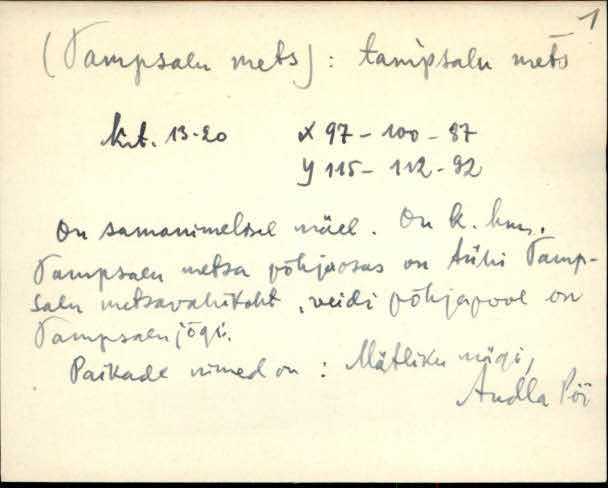 1
(Tampsalu mets): tamp̀salu mets
krt. 13-20 X 97 - 100 - 87
Y 115 - 112 - 92
On samanimelisel mäel. On k. kuu.
Tampsalu metsa põhjaosas on tühi Tamp-
salu metsavahikoht, veidi põhjapool on
Tampsalu jõgi.
Paikade nimed on: Mätliku mägi,
Andla